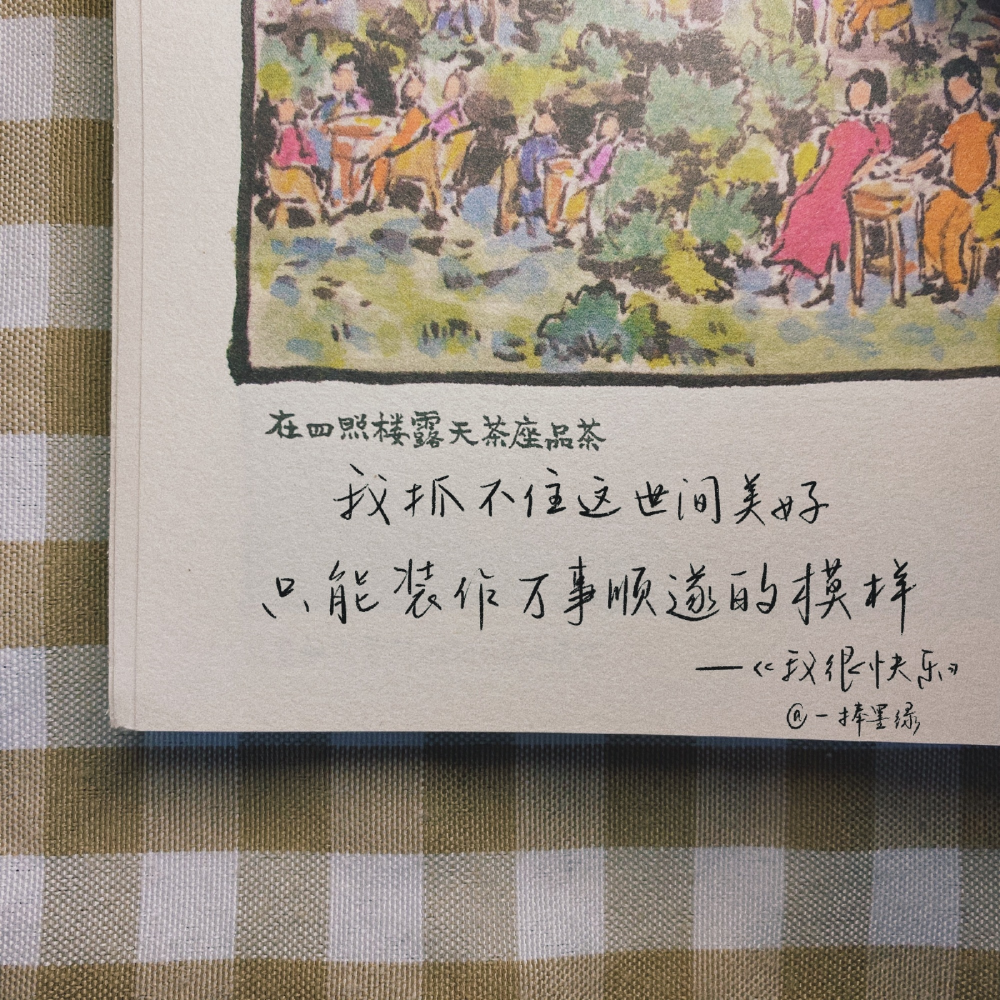 在四照楼露天茶座品茶
我抓不住这世间美好
只能装作万事顺遂的模样
—《我很快乐》
@一捧墨绿